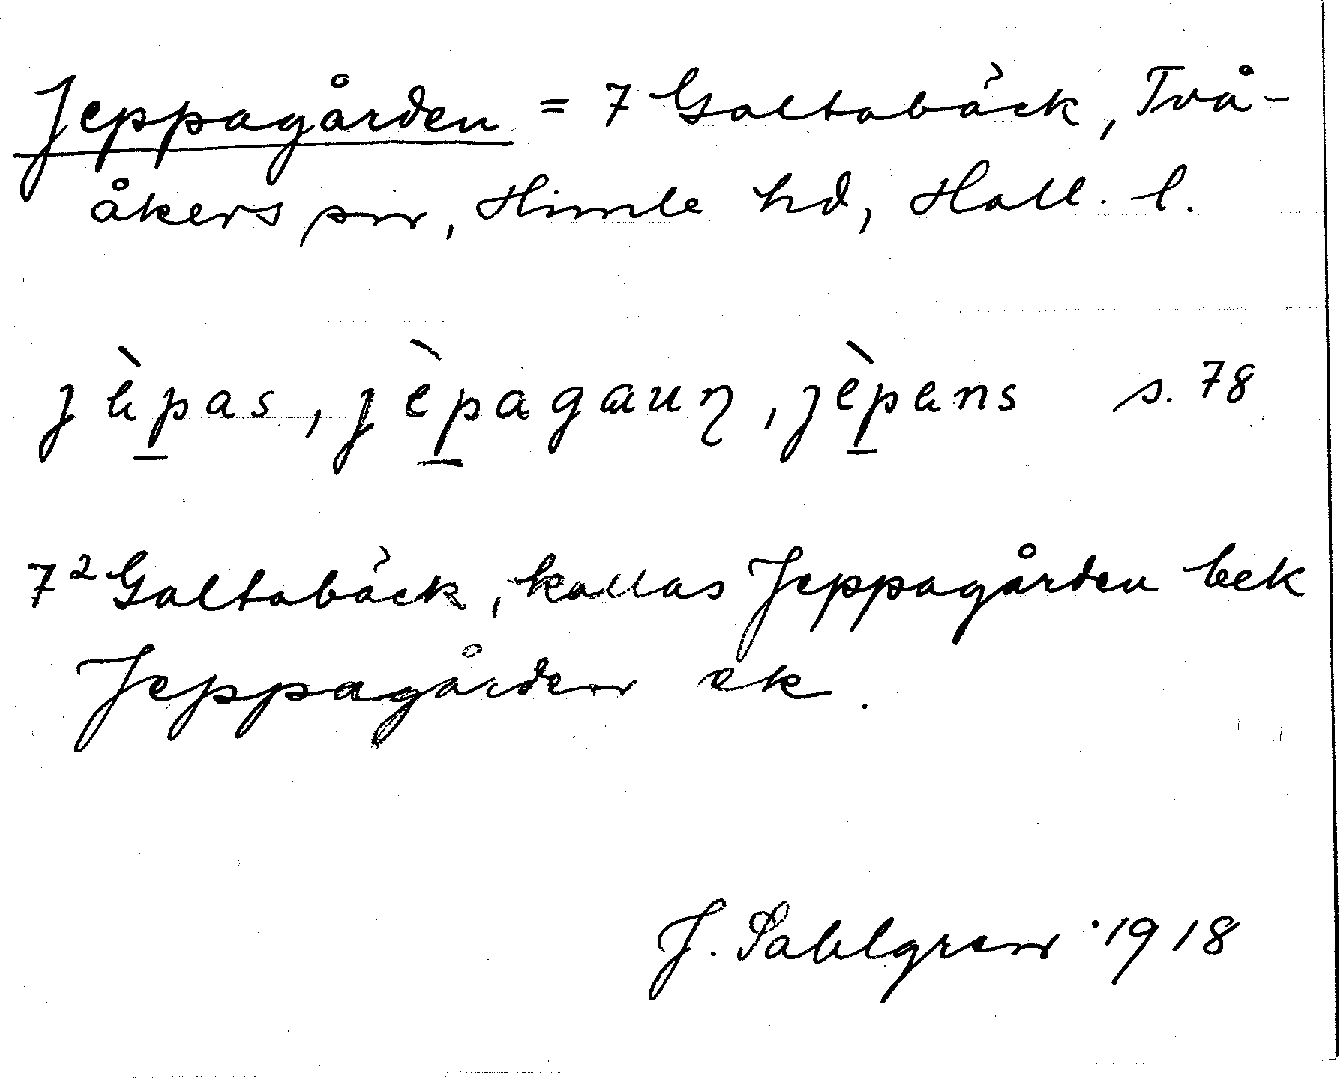 Jeppagården = 7 Galtabäck, Två-
åkers sn, Himle hd, Hall. l.
jèpas, jèpagauɳ, jèpens s. 78
7² Galtabäck, kallas Jeppagården bek
Jeppagården ek.
J. Sahlgren 1918